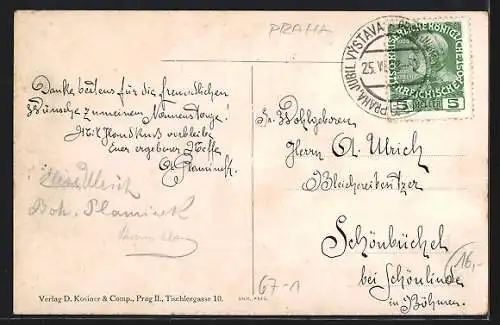 PRAHA
PRAHA-JUBIL. VÝSTAVA
25. VI
5 HELLER 5
Danke bestens für die freundlichen
Wünsche zu meinem Namenstage!
Mit Handkuß verbleibe
Euer ergebener Neffe
Ulrich
Boh. Plaminek
Sr. Wohlgeboren
Herrn A. Ulrich
Bleichereibesitzer
Schönbüchel
bei Schönlinde
in Böhmen.
16,-
67-1
Verlag D. Kosiner & Comp., Prag II., Tischlergasse 10.